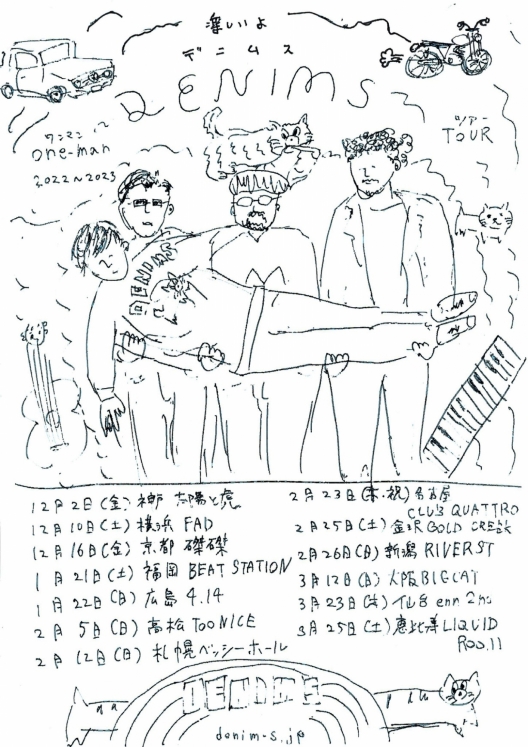 深いいよ
デニムス
DENIMS
ワンマン
one-man
2022~2023
ツアー
TOUR
DENIMS
12月2日(金) 神戸 太陽と虎
12月10日(土) 横浜 FAD
12月16日(金) 京都 磔磔
1月21日(土) 福岡 BEAT STATION
1月22日(日) 広島 4.14
2月5日(日) 高松 TOONICE
2月12日(日) 札幌ベッシーホール
2月23日(木・祝) 名古屋
CLUB QUATTRO
2月25日(土) 金沢 GOLD CREEK
2月26日(日) 新潟 RIVERST
3月12日(日) 大阪 BIGCAT
3月23日 仙台 enn 2nd
3月25日(土) 恵比寿 LIQUID
ROOM
DENIMS
denim-s.jp